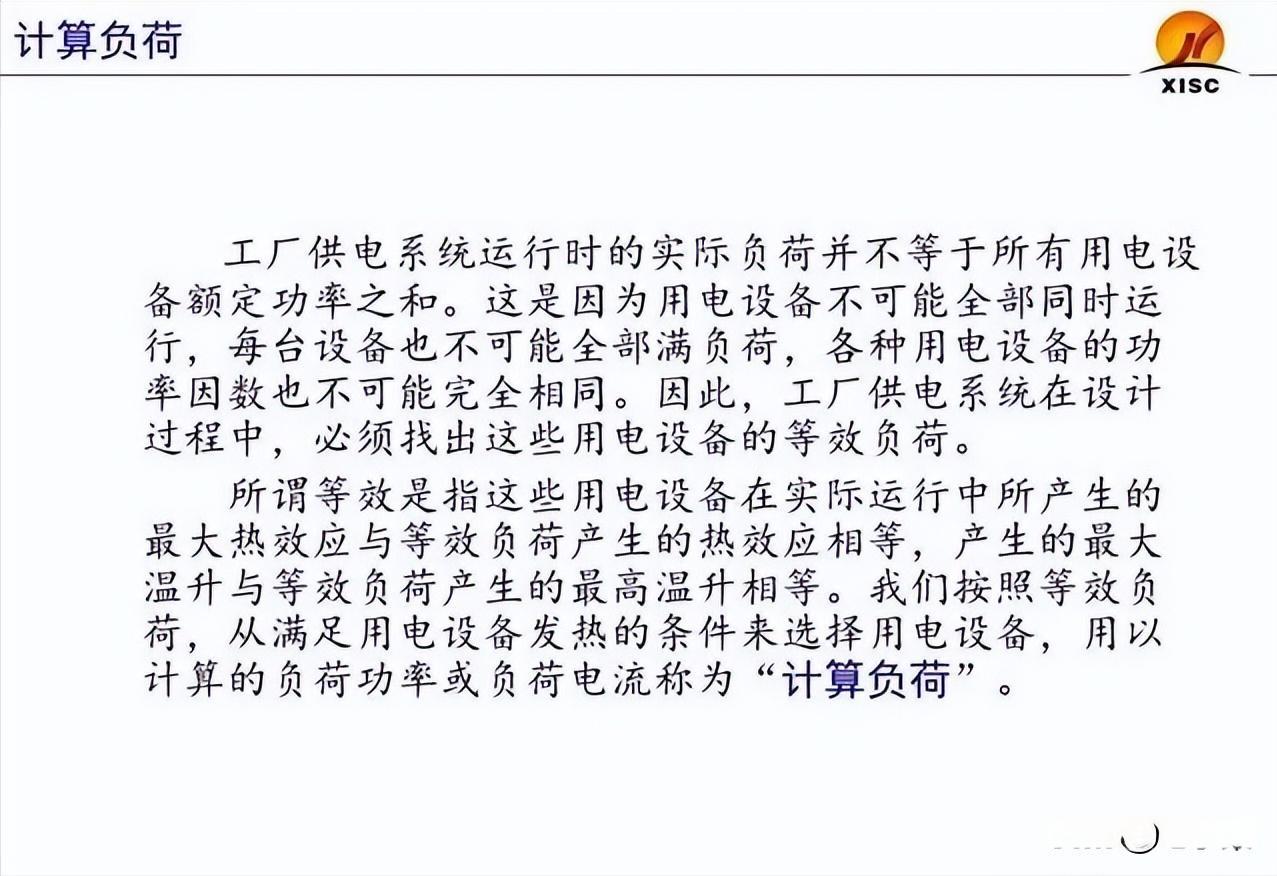 计算负荷
XISC
工厂供电系统运行时的实际负荷并不等于所有用电设
备额定功率之和。这是因为用电设备不可能全部同时运
行，每台设备也不可能全部满负荷，各种用电设备的功
率因数也不可能完全相同。因此，工厂供电系统在设计
过程中，必须找出这些用电设备的等效负荷。
所谓等效是指这些用电设备在实际运行中所产生的
最大热效应与等效负荷产生的热效应相等，产生的最大
温升与等效负荷产生的最高温升相等。我们按照等效负
荷，从满足用电设备发热的条件来选择用电设备，用以
计算的负荷功率或负荷电流称为“计算负荷”。